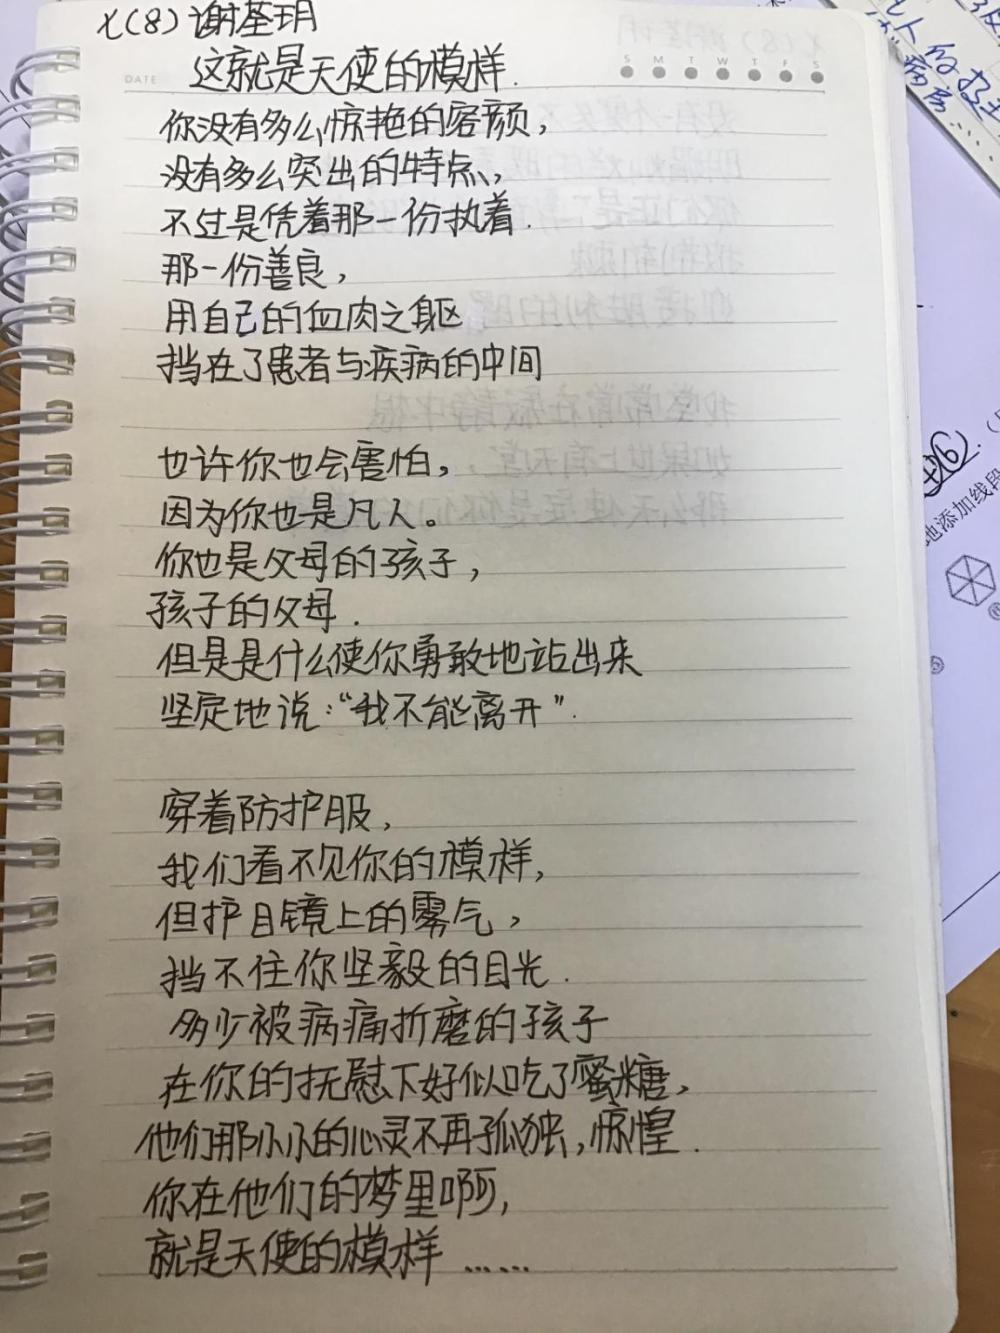 七(8)谢荃玥
这就是天使的模样.
DATE
S M T W T F S
你没有多么惊艳的容颜,
没有多么突出的特点,
不过是凭着那一份执着.
那一份善良,
用自己的血肉之躯
挡在了患者与疾病的中间
也许你也会害怕,
因为你也是凡人。
你也是父母的孩子,
孩子的父母.
但是是什么使你勇敢地站出来
坚定地说:“我不能离开”.
穿着防护服,
我们看不见你的模样,
但护目镜上的雾气,
挡不住你坚毅的目光.
多少被病痛折磨的孩子
在你的抚慰下好似吃了蜜糖,
他们那小小的心灵不再孤独,惊惶.
你在他们的梦里啊,
就是天使的模样……
地添加线段